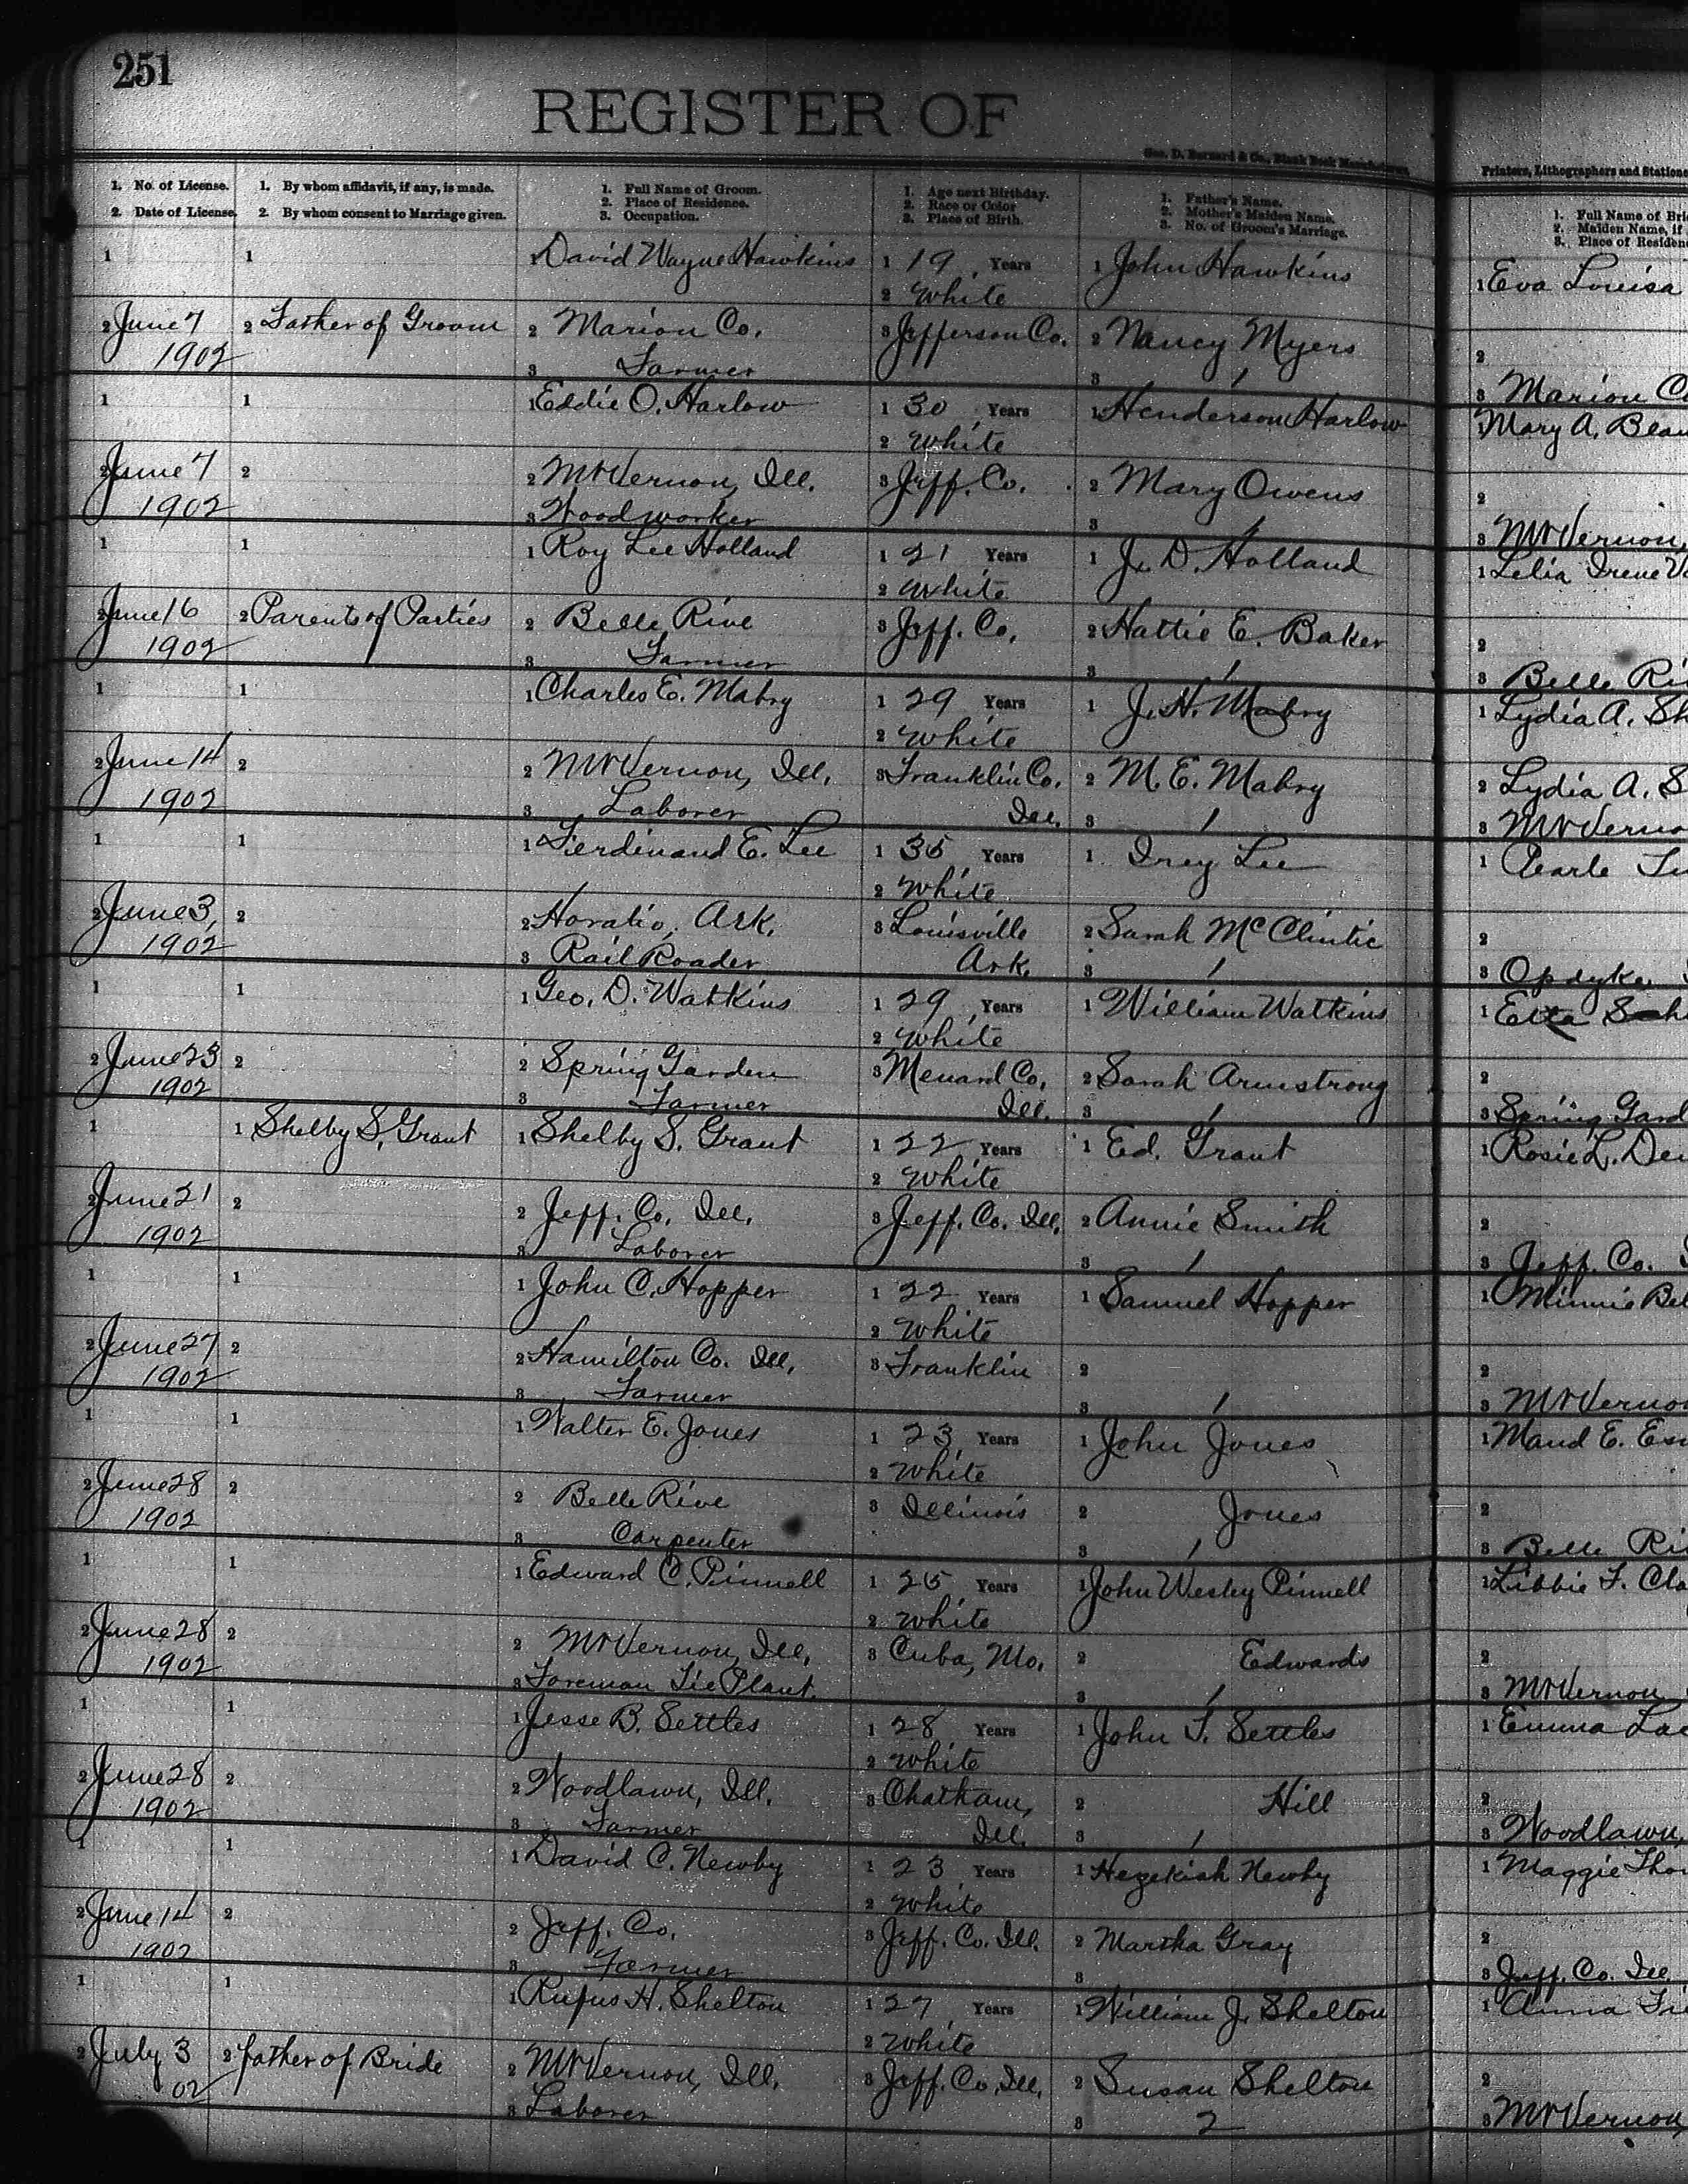 251
REGISTER OF
Geo. D. Barnard & Co., Blank Book Manufacturers,
Printers, Lithographers and Statione
1. No. of License.
2. Date of License.
1. By whom affidavit, if any, is made.
2. By whom consent to Marriage given.
1. Full Name of Groom.
2. Place of Residence.
3. Occupation.
1. Age next Birthday.
2. Race or Color
3. Place of Birth.
1. Father's Name.
2. Mother's Maiden Name.
3. No. of Groom's Marriage.
1. Full Name of Bri
2. Maiden Name, if
3. Place of Residen
1 1 1 David Wayne Hawkins 1 19 Years 1 John Hawkins 1 Eva Louisa
2 White
2 June 7 2 Father of Groom 2 Marion Co. 3 Jefferson Co. 2 Nancy Myers 2
1902 3 Farmer 3 1 3 Marion C
1 1 1 Eddie O. Harlow 1 30 Years 1 Henderson Harlow 1 Mary A. Beau
2 White
2 June 7 2 2 Mt Vernon, Ill. 3 Jeff. Co. 2 Mary Owens 2
1902 3 Woodworker 3 1 3 Mt Vernon,
1 1 1 Roy Lee Holland 1 21 Years 1 J. D. Holland 1 Lelia Irene
2 White
2 June 16 2 Parents of Parties 2 Belle Rive 3 Jeff. Co. 2 Hattie E. Baker 2
1902 3 Farmer 3 1 3 Belle Ri
1 1 1 Charles E. Mabry 1 29 Years 1 J. H. Mabry 1 Lydia A. Sh
2 White
2 June 14 2 2 Mt Vernon, Ill. 3 Franklin Co. 2 M. E. Mabry 2 Lydia A. S
1902 3 Laborer Ill. 3 1 3 Mt Verno
1 1 1 Ferdinand E. Lee 1 35 Years 1 Irey Lee 1 Pearle
2 White
2 June 3, 2 2 Horatio, Ark. 3 Louisville 2 Sarah McClintic 2
1902 3 Rail Roader Ark. 3 1 3 Opdyke,
1 1 1 Geo. D. Watkins 1 29 Years 1 William Watkins 1 Etta
2 White
2 June 23 2 2 Spring Garden 3 Menard Co. 2 Sarah Armstrong 2
1902 3 Farmer Ill. 3 1 3 Spring Gard
1 1 Shelby S. Grant 1 Shelby S. Grant 1 22 Years 1 Ed. Grant 1 Rosie L. De
2 White
2 June 21 2 2 Jeff. Co. Ill. 3 Jeff. Co. Ill. 2 Annie Smith 2
1902 3 Laborer 3 1 3 Jeff. Co.
1 1 1 John C. Hopper 1 22 Years 1 Samuel Hopper 1 Minnie Bel
2 White
2 June 27 2 2 Hamilton Co. Ill. 3 Franklin 2 2
1902 3 Farmer 3 1 3 Mt Verno
1 1 1 Walter E. Jones 1 23 Years 1 John Jones 1 Maud E.
2 White
2 June 28 2 2 Belle Rive 3 Illinois 2 Jones 2
1902 3 Carpenter 3 1 3 Belle Ri
1 1 1 Edward C. Pinnell 1 25 Years 1 John Wesley Pinnell 1 Libbie F. Cla
2 White
2 June 28 2 2 Mt Vernon, Ill. 3 Cuba, Mo. 2 Edwards 2
1902 3 Foreman Tie Plant. 3 1 3 Mt Vernon
1 1 1 Jesse B. Settles 1 28 Years 1 John T. Settles 1 Emma
2 White
2 June 28 2 2 Woodlawn, Ill. 3 Chatham, 2 Hill 2
1902 3 Farmer Ill. 3 1 3 Woodlawn,
1 1 1 David C. Newby 1 23 Years 1 Hezekiah Newby 1 Maggie Tho
2 White
2 June 14 2 2 Jeff. Co. 3 Jeff. Co. Ill. 2 Martha Gray 2
1902 3 Farmer 3 3 Jeff. Co. Ill.
1 1 1 Rufus H. Shelton 1 27 Years 1 William J. Shelton 1 Anna
2 White
2 July 3 2 father of Bride 2 Mt Vernon, Ill. 3 Jeff. Co. Ill. 2 Susan Shelton 2
02 3 Laborer 3 2 3 Mt Vernon,